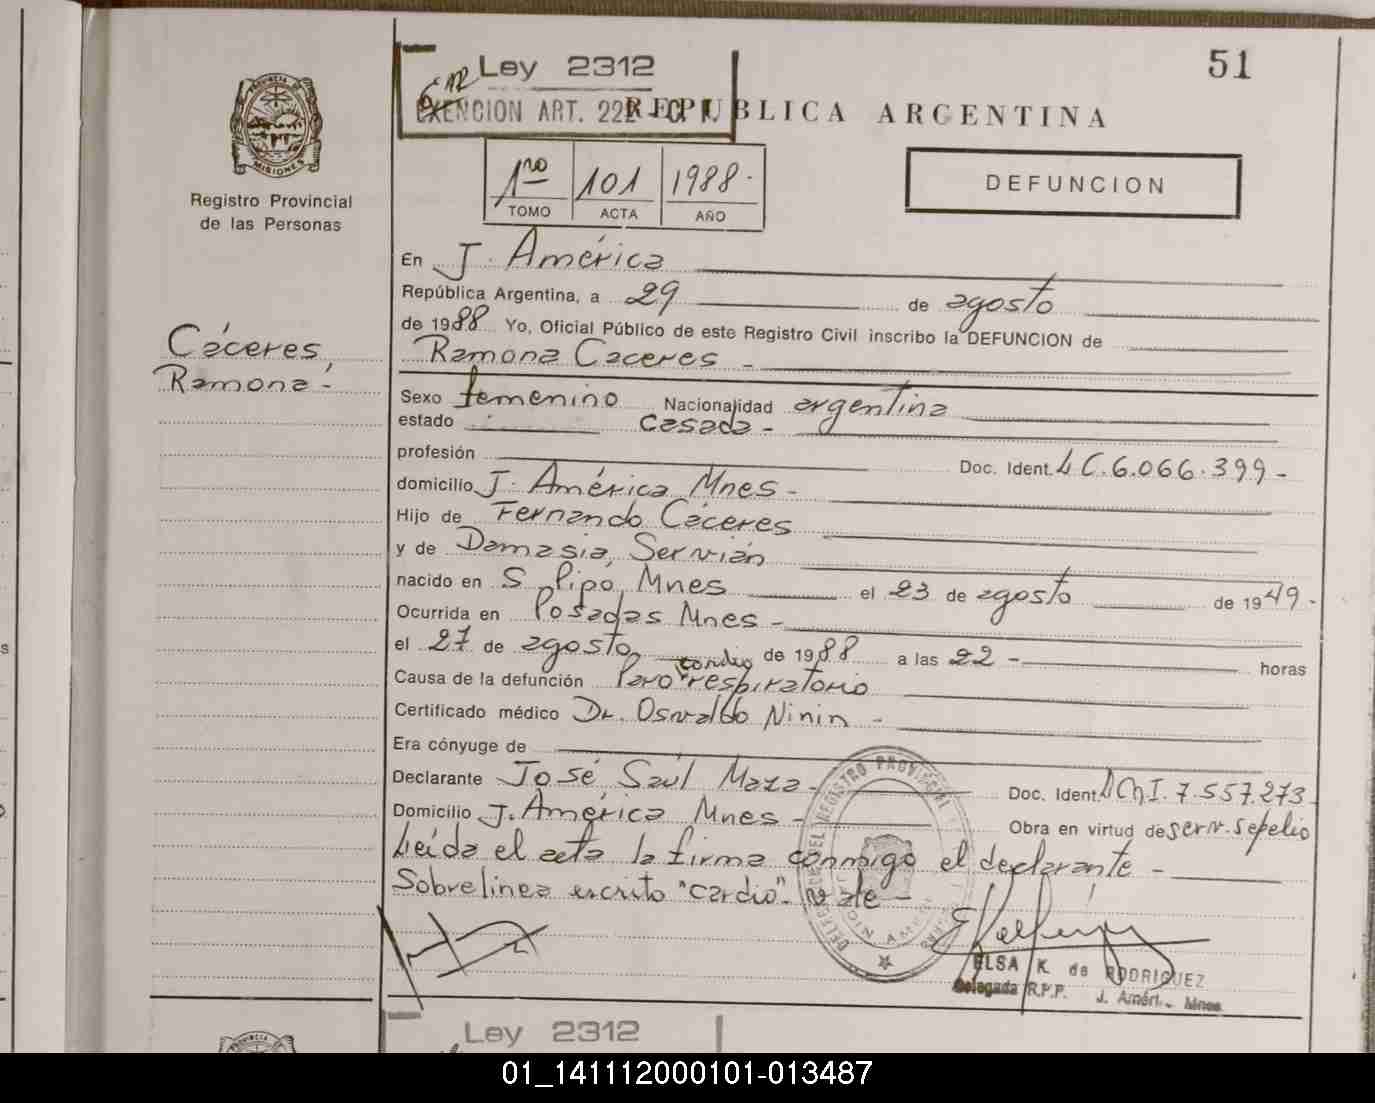 51
Ley 2312
EXENCION ART. 222 - CPF
REPUBLICA ARGENTINA
PROVINCIA DE
MISIONES
Registro Provincial
de las Personas
1ro 101 1988.
TOMO ACTA AÑO
DEFUNCION
En J. América
República Argentina, a 29 de agosto
de 1988 Yo, Oficial Público de este Registro Civil inscribo la DEFUNCION de
Ramona Caceres -
Cáceres
Ramona -
Sexo femenino Nacionalidad argentina
estado casada -
profesión Doc. Ident. L C. 6.066.399 -
domicilio J. América Mnes -
Hijo de Fernando Cáceres
y de Damasia Servián
nacido en S. Pipó, Mnes el 23 de agosto de 1949 -
Ocurrida en Posadas Mnes -
el 27 de agosto de 1988 a las 22 - horas
cardio
Causa de la defunción Paro respiratorio
Certificado médico Dr. Osvaldo Ninin -
Era cónyuge de
Declarante José Saúl Maza - Doc. Ident. DNI. 7.557.273
Domicilio J. América Mnes - Obra en virtud de serv. sepelio
Leída el acta la firma conmigo el declarante -
Sobrelínea escrito "cardio". Vale -
ELSA K. de RODRIGUEZ
Delegada R.P.P. J. Améri. Mnes.
PROVINCIA
Ley 2312
01_141112000101-013487